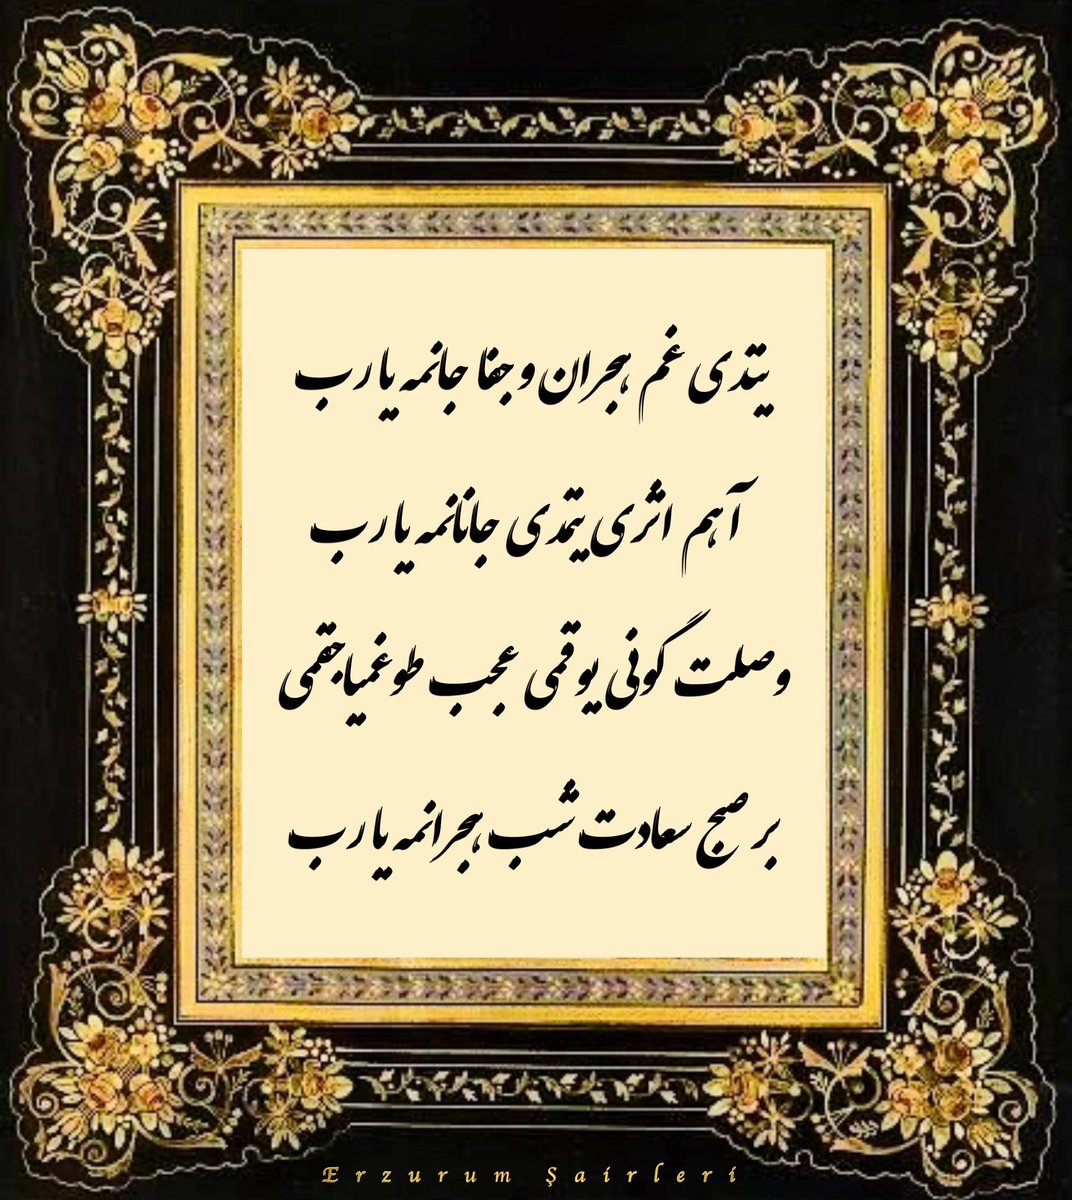 یتدی غم هجران و جفا جانمه یا رب
آهم اثری یتمدی جانانمه یا رب
وصلت گونی یوقمی عجب طوغمیاجقمی
بر صبح سعادت شب هجرانمه یا رب
Erzurum Şairleri